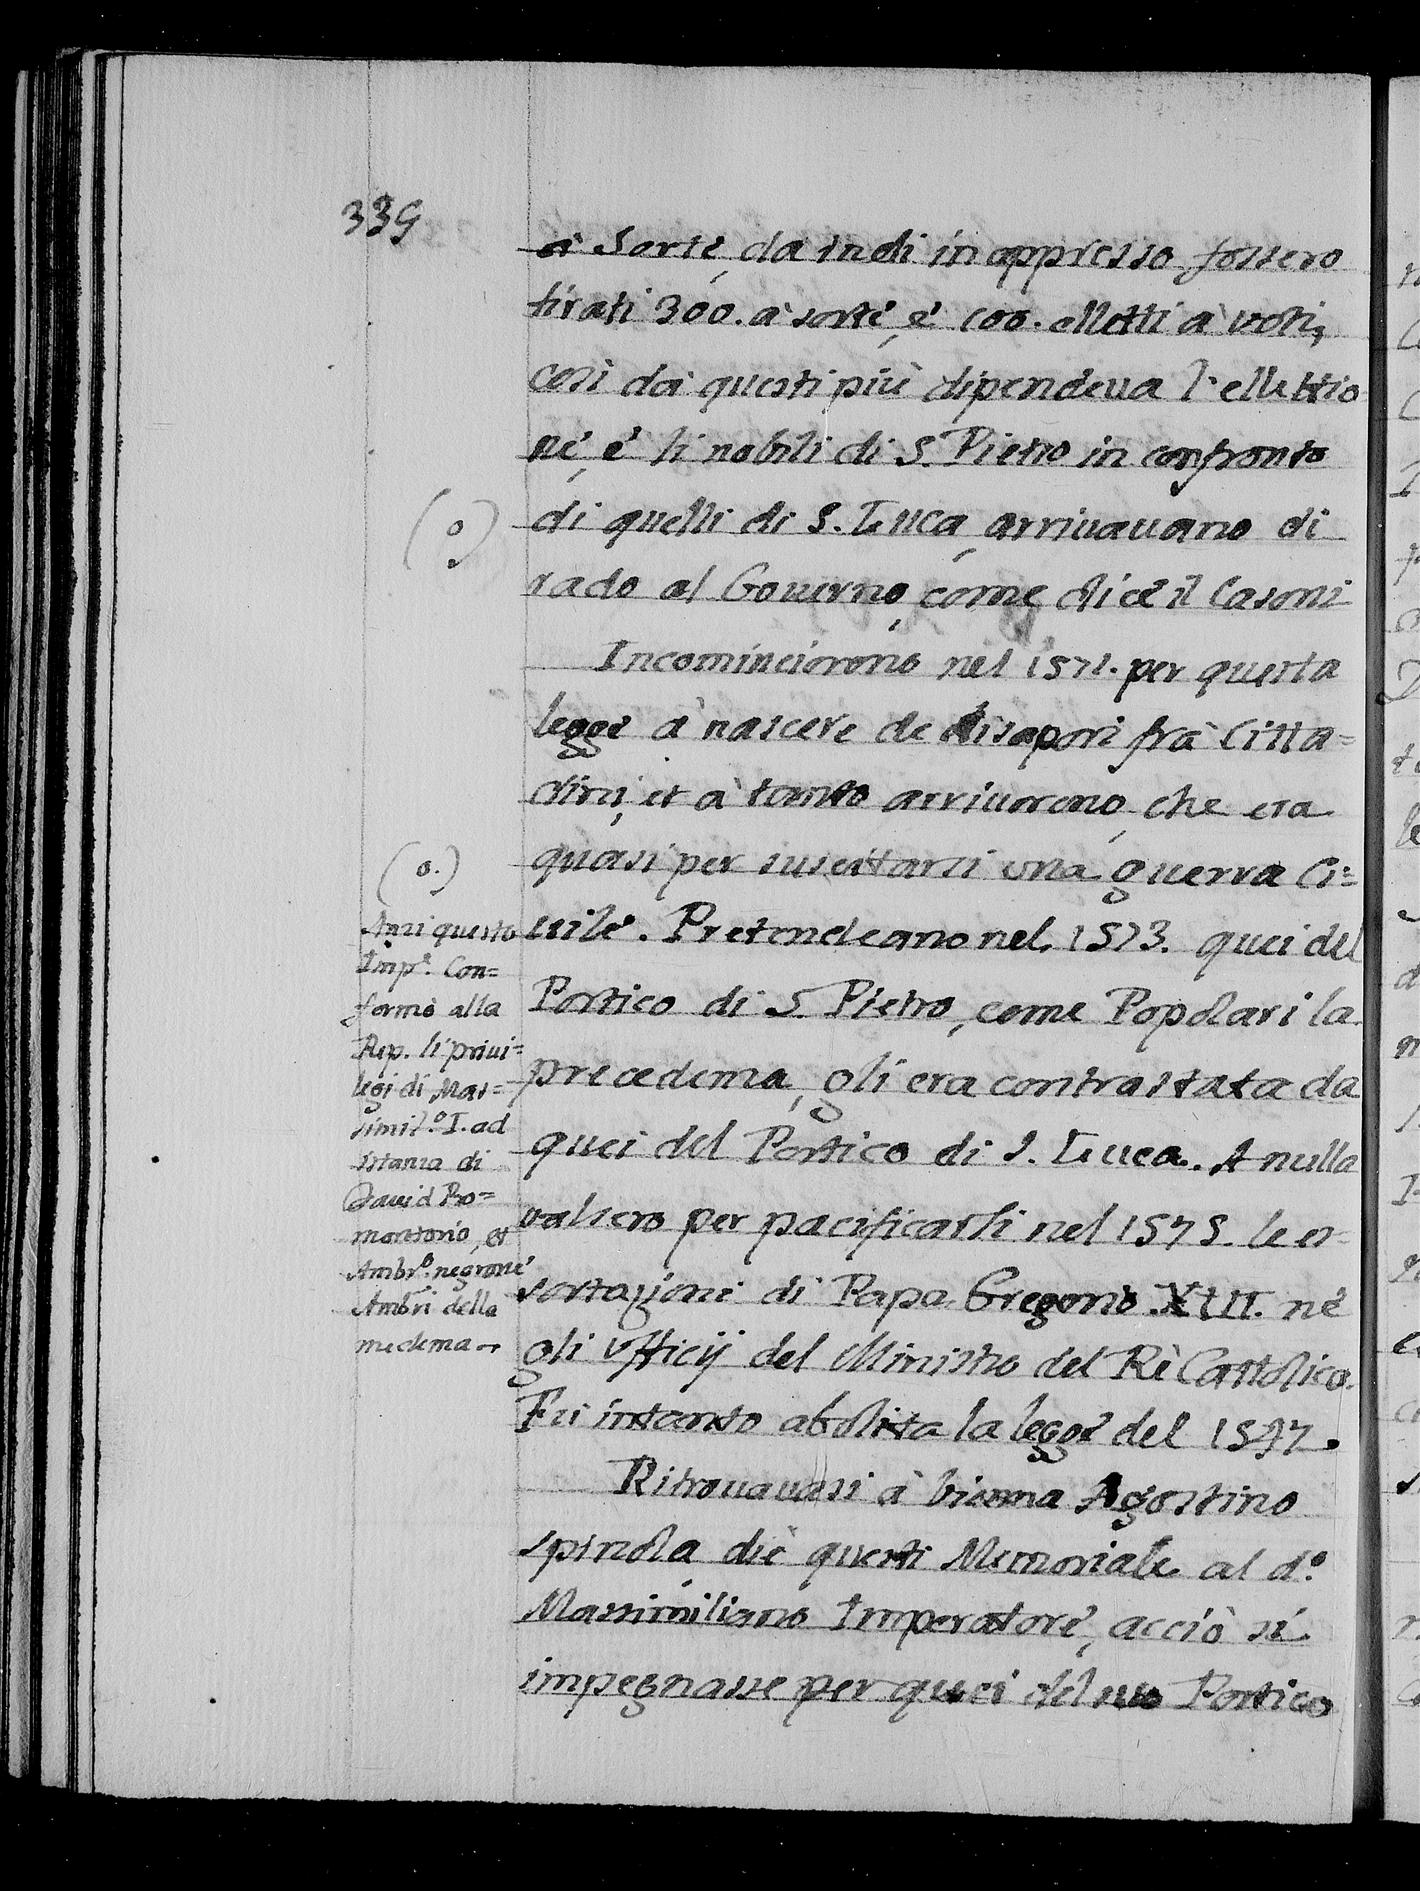 339
à sorte, da indi in appresso fossero
tirati 300. à sorte, è 100. elletti à voti,
così da questi più dipendeua l'ellettio
ne, è li nobili di S. Pietro in confronto
(o)
di quelli di S. Luca, arriuauano di
rado al Gouerno, come dice il Casoni
Incominciorono nel 1571. per questa
legge à nascere de disapori frà Citta=
dini, et à tanto arriuorono, che era
quasi per suscitarsi una guerra Ci=
uile. Pretendeano nel 1573. quei del
Portico di S. Pietro, come Popolari la
precedenza, gli era contrastata da
quei del Portico di S. Luca. A nulla
valsero per pacificarli nel 1575. le es=
sortazioni di Papa Gregorio XIII. nè
gli ufficij del Ministro del Rè Cattolico.
Fù intanto abolita la legge del 1547.
Ritrouauasi à Vienna Agostino
Spinola, diè questi Memoriale al d.º
Massimiliano Imperatore, acciò si
impegnasse per quei del suo Portico
(o.)
Anzi questo
Imp.e Con=
formò alla
Rep. li priui=
legi di Mas=
simil.º I. ad
istanza di
Dauid Pro=
montorio, et
Ambr.º negrone
Ambri della
medema